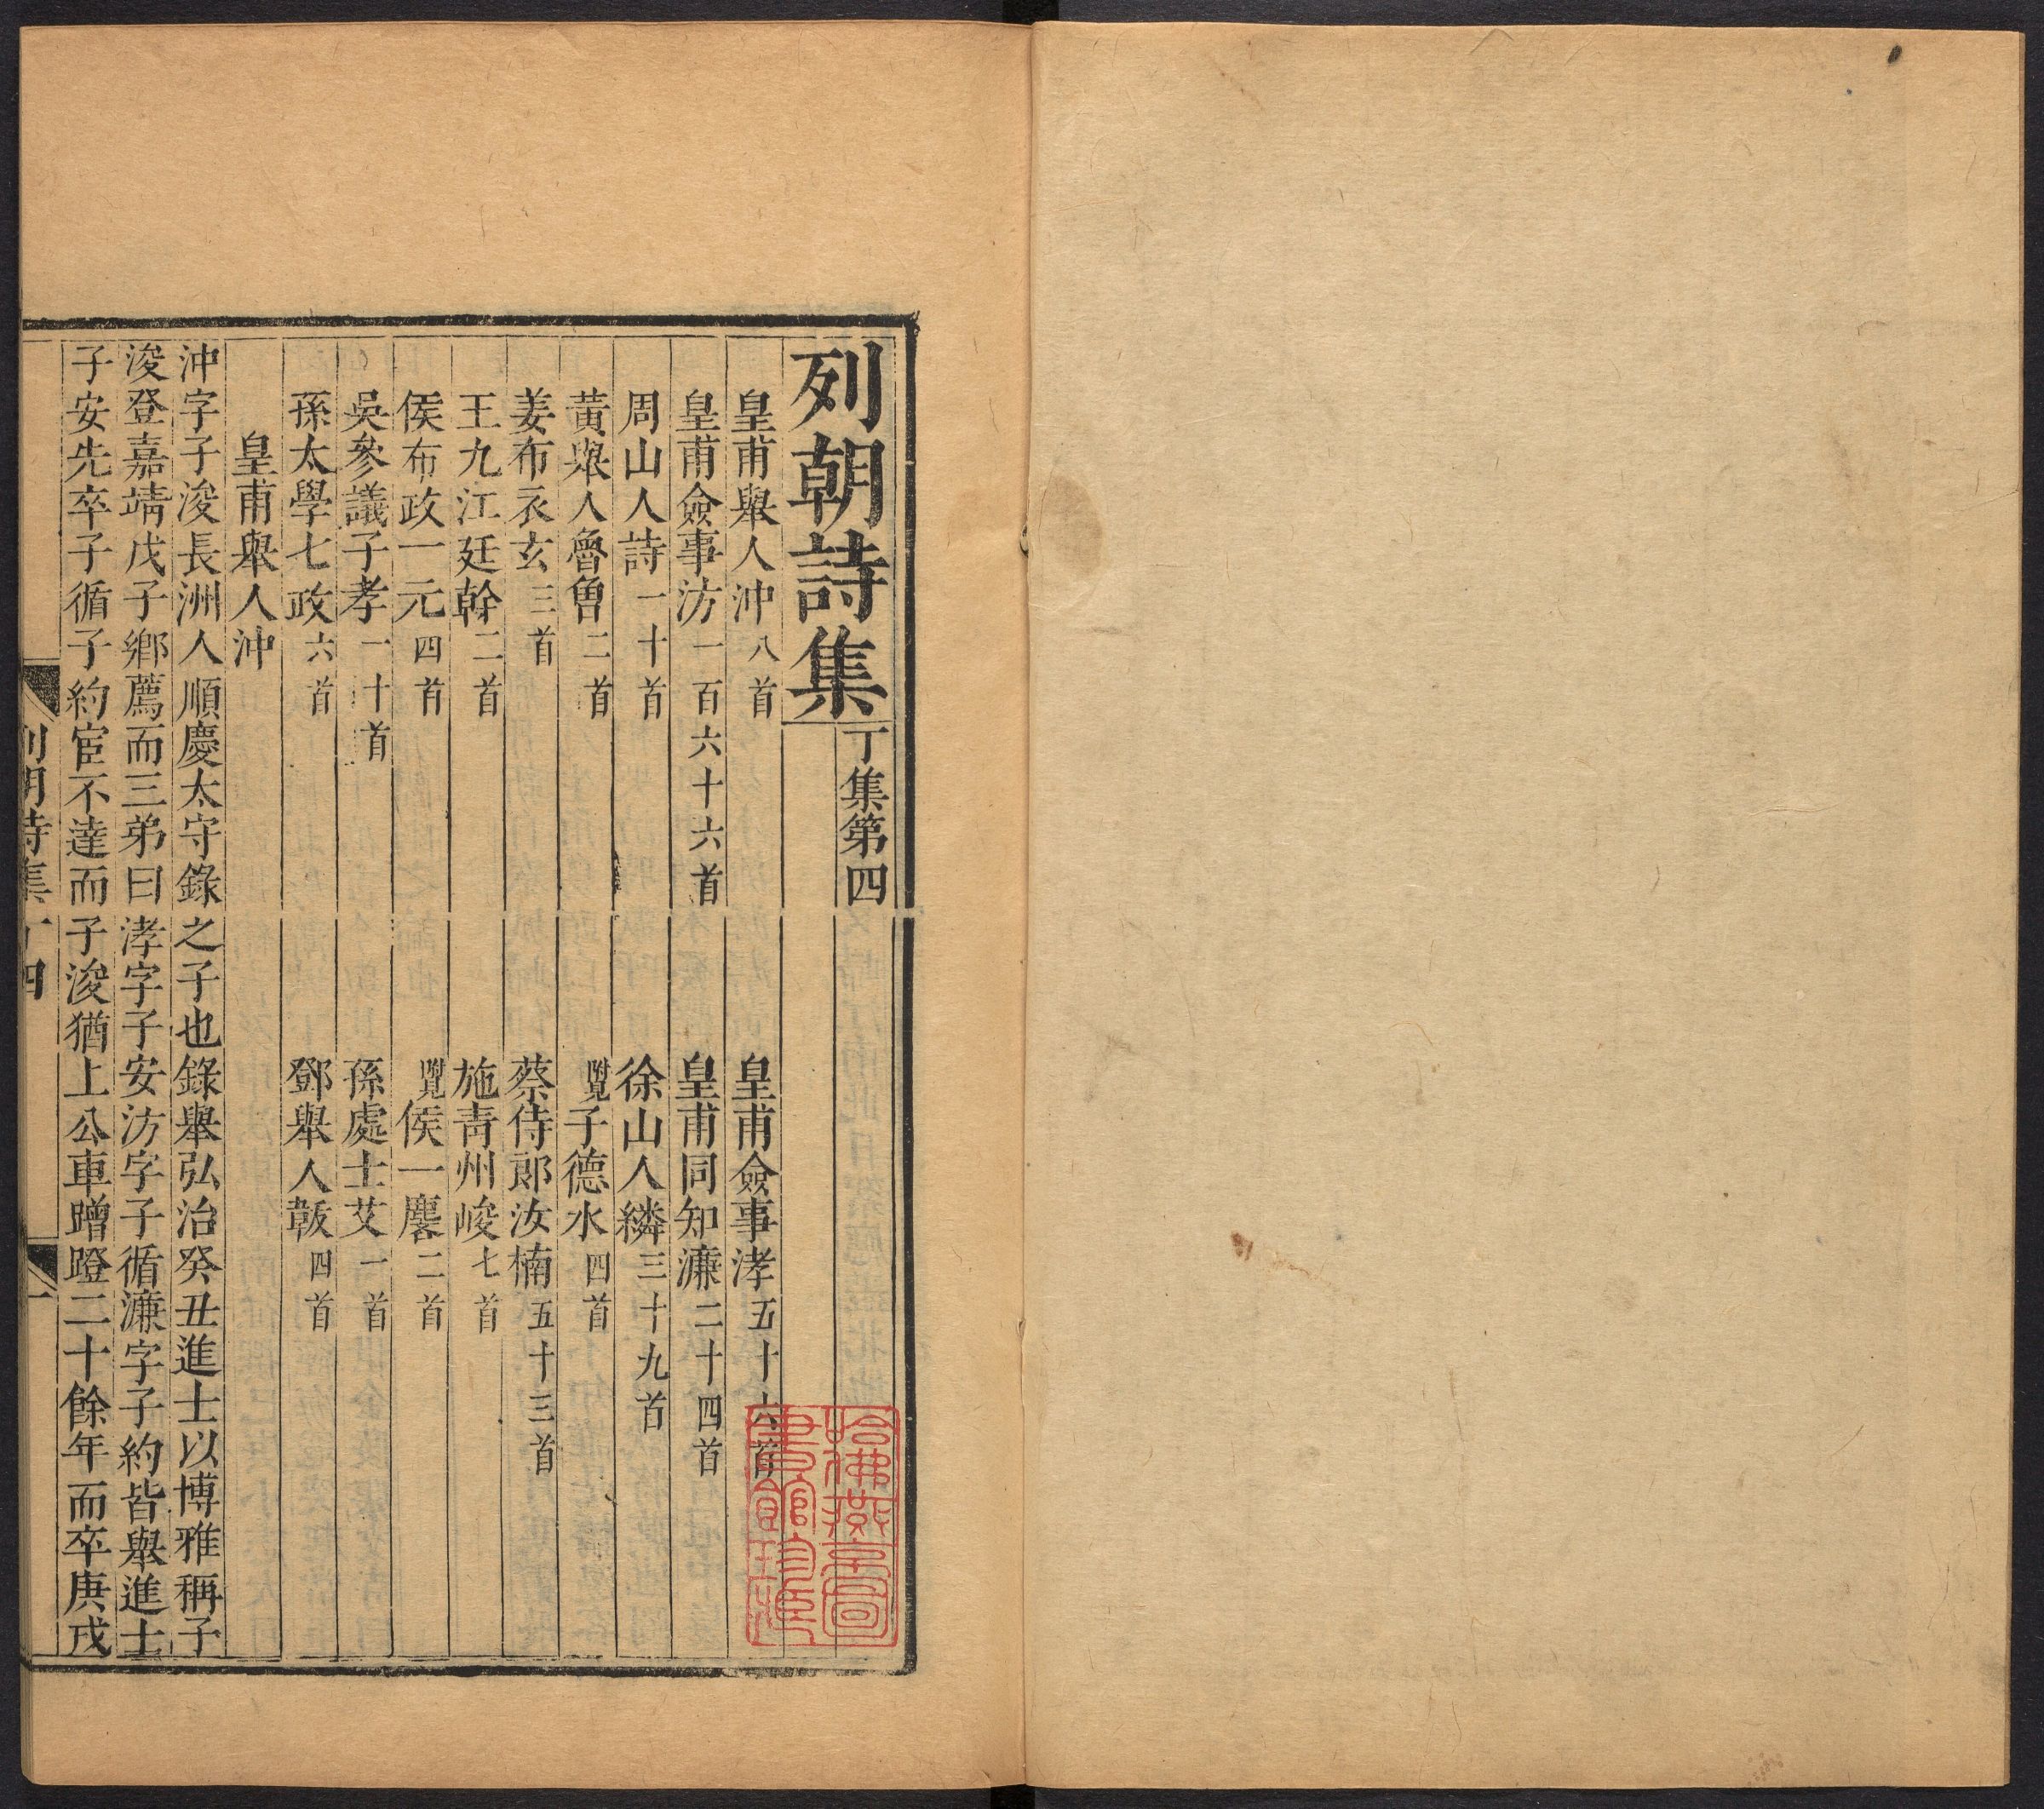 列朝詩集 丁集第四
皇甫舉人沖 八首 皇甫僉事涍 五十六首
皇甫僉事汸 一百六十六首 皇甫同知濂 二十四首
周山人詩 一十首 徐山人繗 三十九首
黃舉人魯曾 二首 附見 子德水 四首
姜布衣玄 三首 蔡侍郎汝楠 五十三首
王九江廷幹 二首 施青州峻 七首
侯布政一元 四首 附見 侯一麐 二首
吳參議子孝 一十首 孫處士艾 一首
孫太學七政 六首 鄧舉人韍 四首
皇甫舉人沖
沖字子浚長洲人順慶太守錄之子也錄舉弘治癸丑進士以博雅稱子
浚登嘉靖戊子鄉薦而三弟曰涍字子安汸字子循濂字子約皆舉進士
子安先卒子循子約宦不達而子浚猶上公車蹭蹬二十餘年而卒庚戌
列朝詩集 丁四 一
哈佛燕京圖書館珍藏